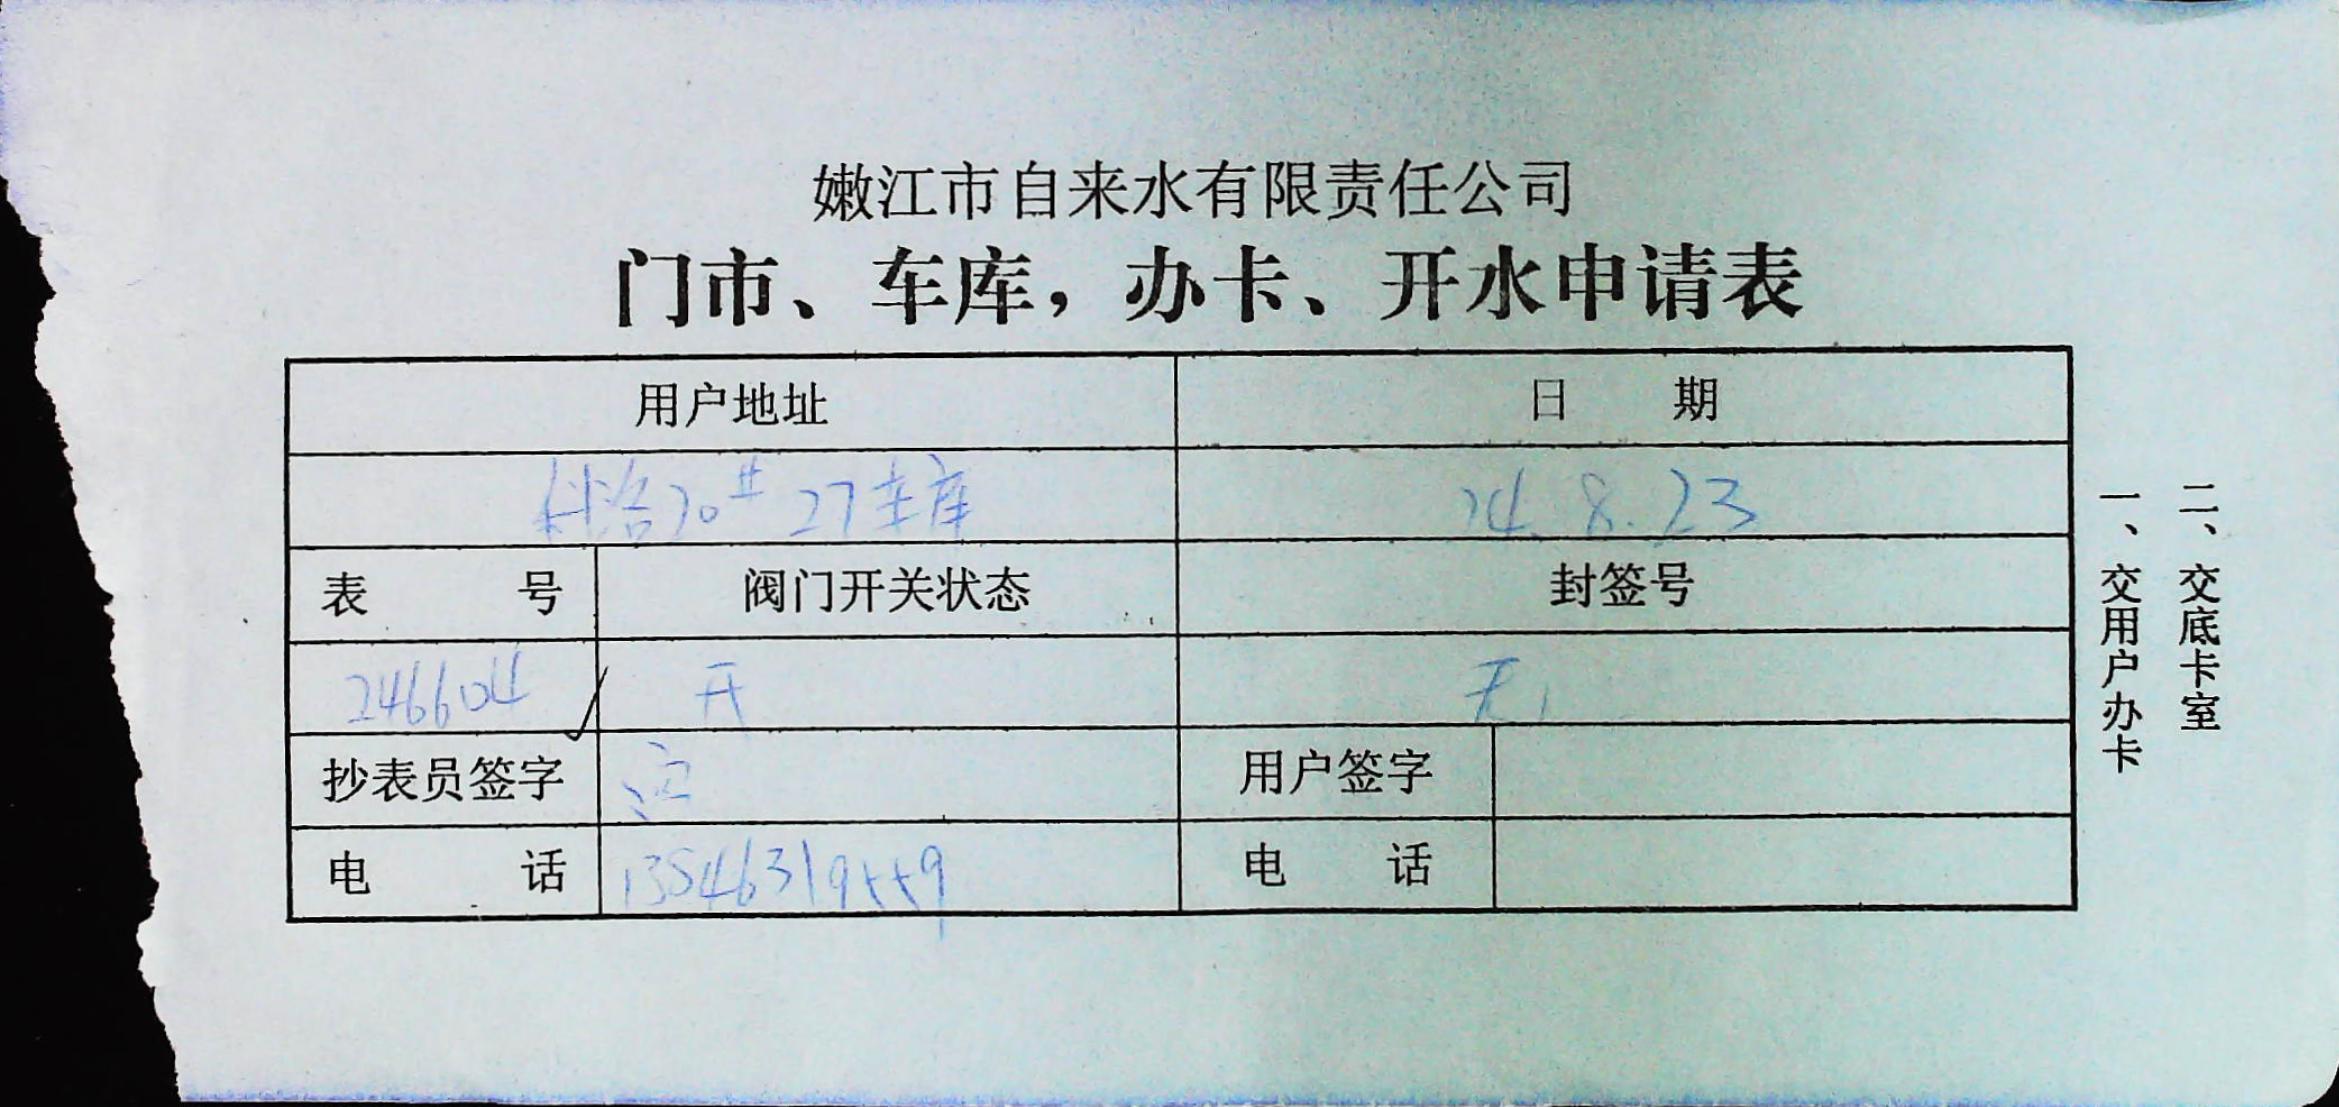 嫩江市自来水有限责任公司
门市、车库，办卡、开水申请表
用户地址 日 期
科洛70# 27车库 24.8.23
表 号 阀门开关状态 封签号
246604 开 无
抄表员签字 用户签字
电 话 13546319559 电 话
一、交用户办卡
二、交底卡室